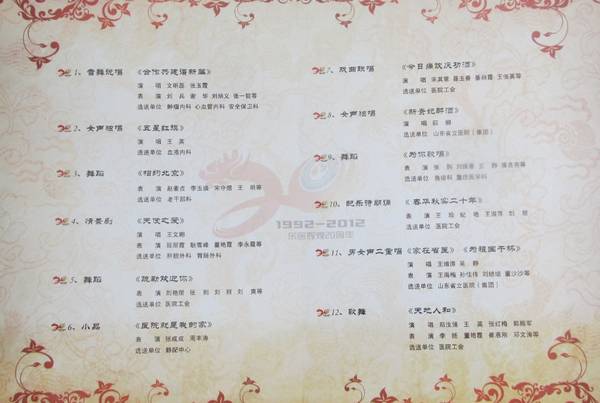 1、歌舞说唱 《合作共建谱新篇》
演 唱 文明磊 张玉霞
表 演 刘 兵 谢 华 刘炳义 张一韶等
选送单位 肿瘤内科 心血管内科 安全保卫科
2、女声独唱 《五星红旗》
演 唱 王 英
选送单位 血液内科
3、舞蹈 《相约北京》
表 演 赵素贞 李玉涵 宋中燃 王 明等
选送单位 老干部科
4、情景剧 《天使之爱》
演 唱 王文娟
表 演 段丽霞 耿雪峰 董艳霞 李永霞等
选送单位 肝胆外科 胃肠外科
5、舞蹈 《疏勒欢迎你》
表 演 刘艳荣 张 刚 刘 颖 刘 爽等
选送单位 医院工会
6、小品 《医院就是我的家》
表 演 张成成 周丰涛
选送单位 静配中心
7、戏曲联唱 《今日痛饮庆功酒》
演 唱 王佩英等
选送单位 医院工会
8、女声独唱 《新贵妃醉酒》
演 唱
选送单位 山东省立医院(集团)
9、舞蹈 《为你歌唱》
表 演
选送单位 重症医学科
10、配乐诗朗诵 《春华秋实二十年》
演 王 琼 纪 艳 王淑萍 刘 慧
选送单位 医院工会
11、男女声二重唱 《家在省医》《为祖国干杯》
演 唱 王维强 吴 静
表 演 王海梅 孙佳伟 刘晓培 董沙沙等
选送单位 山东省立医院(集团)
12、歌舞 《天地人和》
演 唱 郑汝涌 王 英 张红梅 郭振军
表 演 李 娆 董艳霞 崔燕刚 邓文涛等
选送单位 医院工会
1992-2012